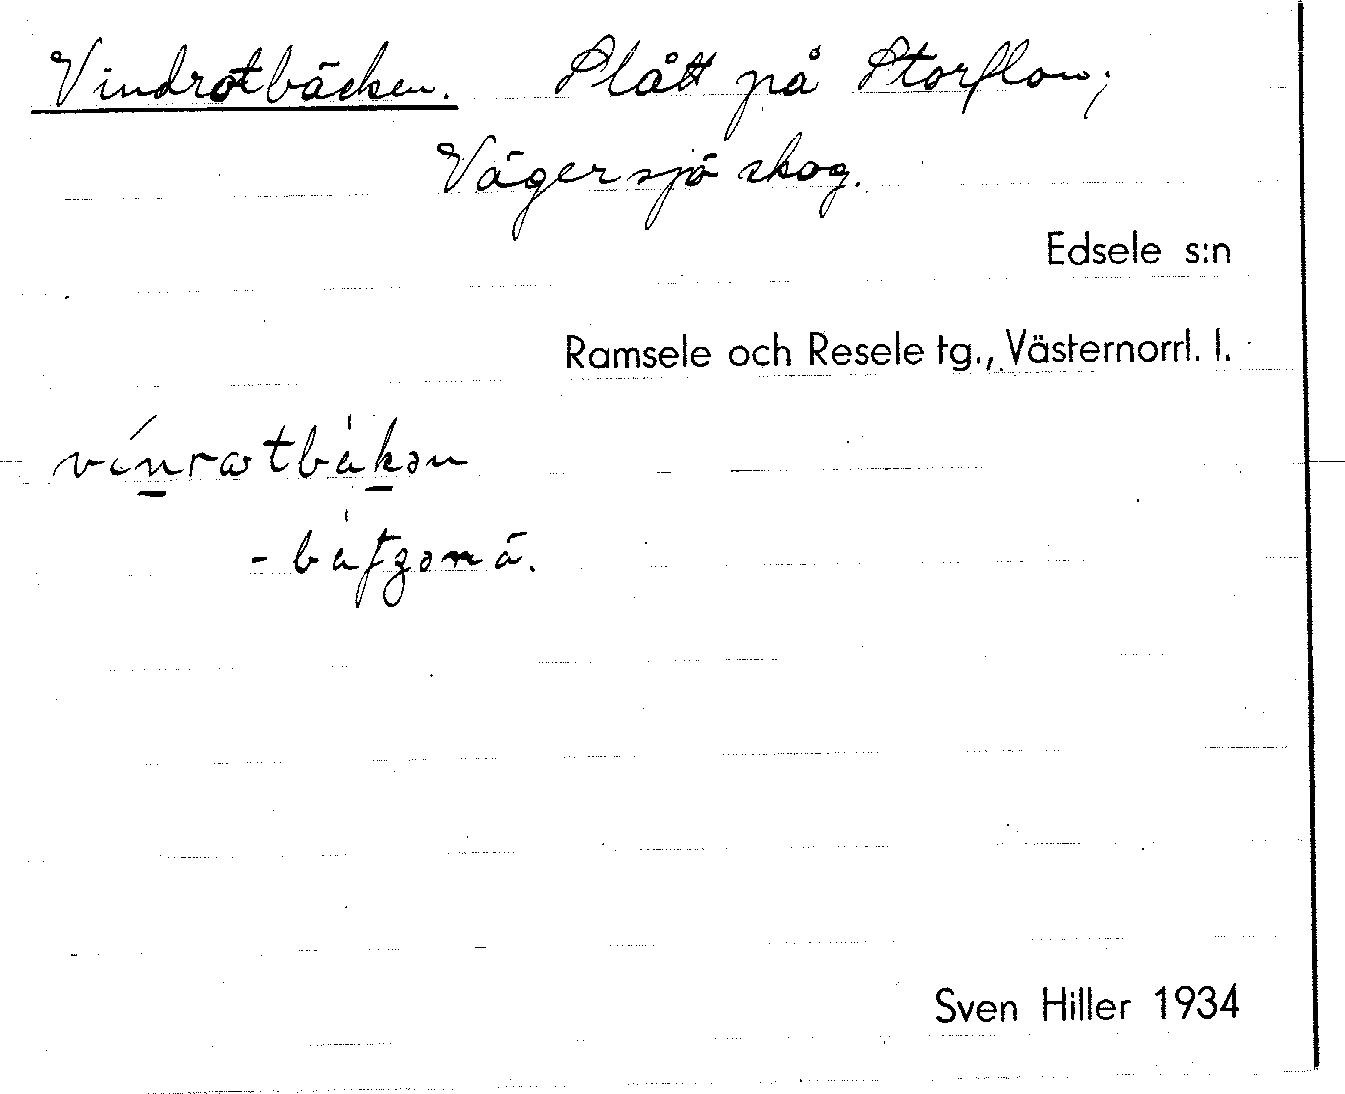 Vindrotbäcken. Slått på Storflon;
Vägersjö skog.
Edsele s:n
Ramsele och Resele tg., Västernorrl. l.
Sven Hiller 1934